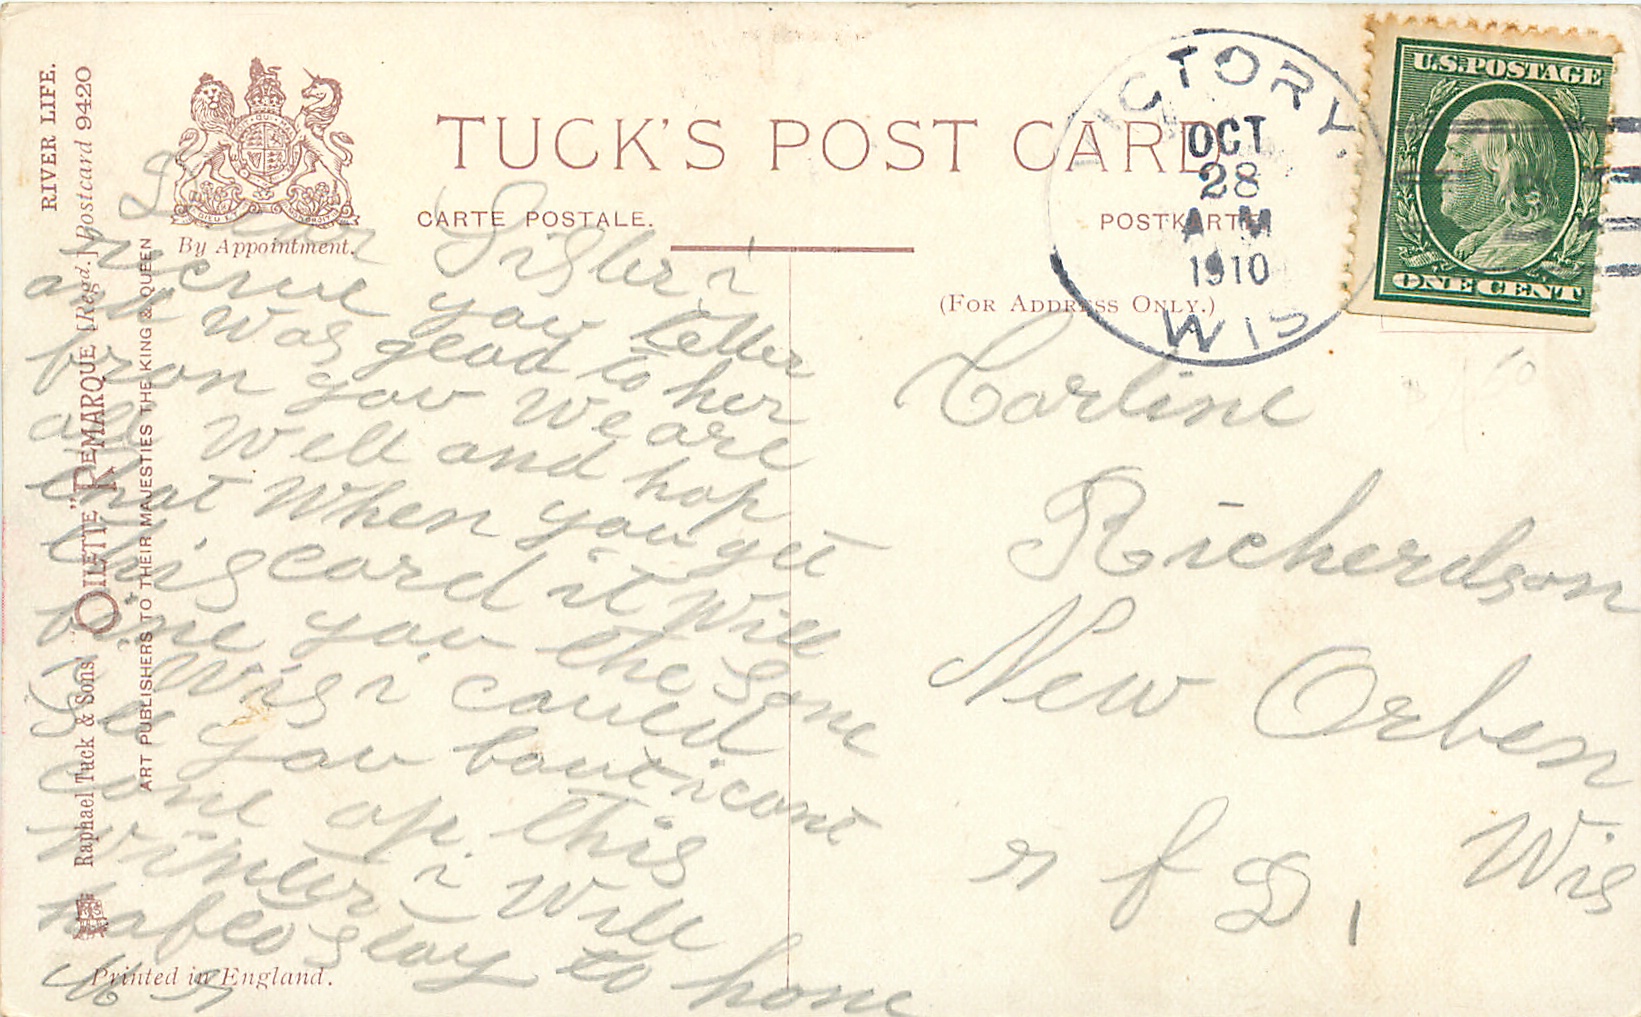 RIVER LIFE.
Raphael Tuck & Sons' "OILETTE" REMARQUE [Regd.] Postcard 9420
ART PUBLISHERS TO THEIR MAJESTIES THE KING & QUEEN
By Appointment.
TUCK'S POST CARD
CARTE POSTALE.
POSTKARTE
(FOR ADDRESS ONLY.)
VICTORY,
OCT
28
A M
1910
WIS
U.S. POSTAGE
ONE CENT
Dear Sister i
receve you letter
and was gead to her
fron you We are
all Well and hop
that When you get
this card it Will
fine you the Sone
i Wis i could
See you bout i cant
cone op this
Winter i Will
hafto Stay to hone
Carline
Richerdson
New Orben
Wis
r f D, 1
Printed in England.